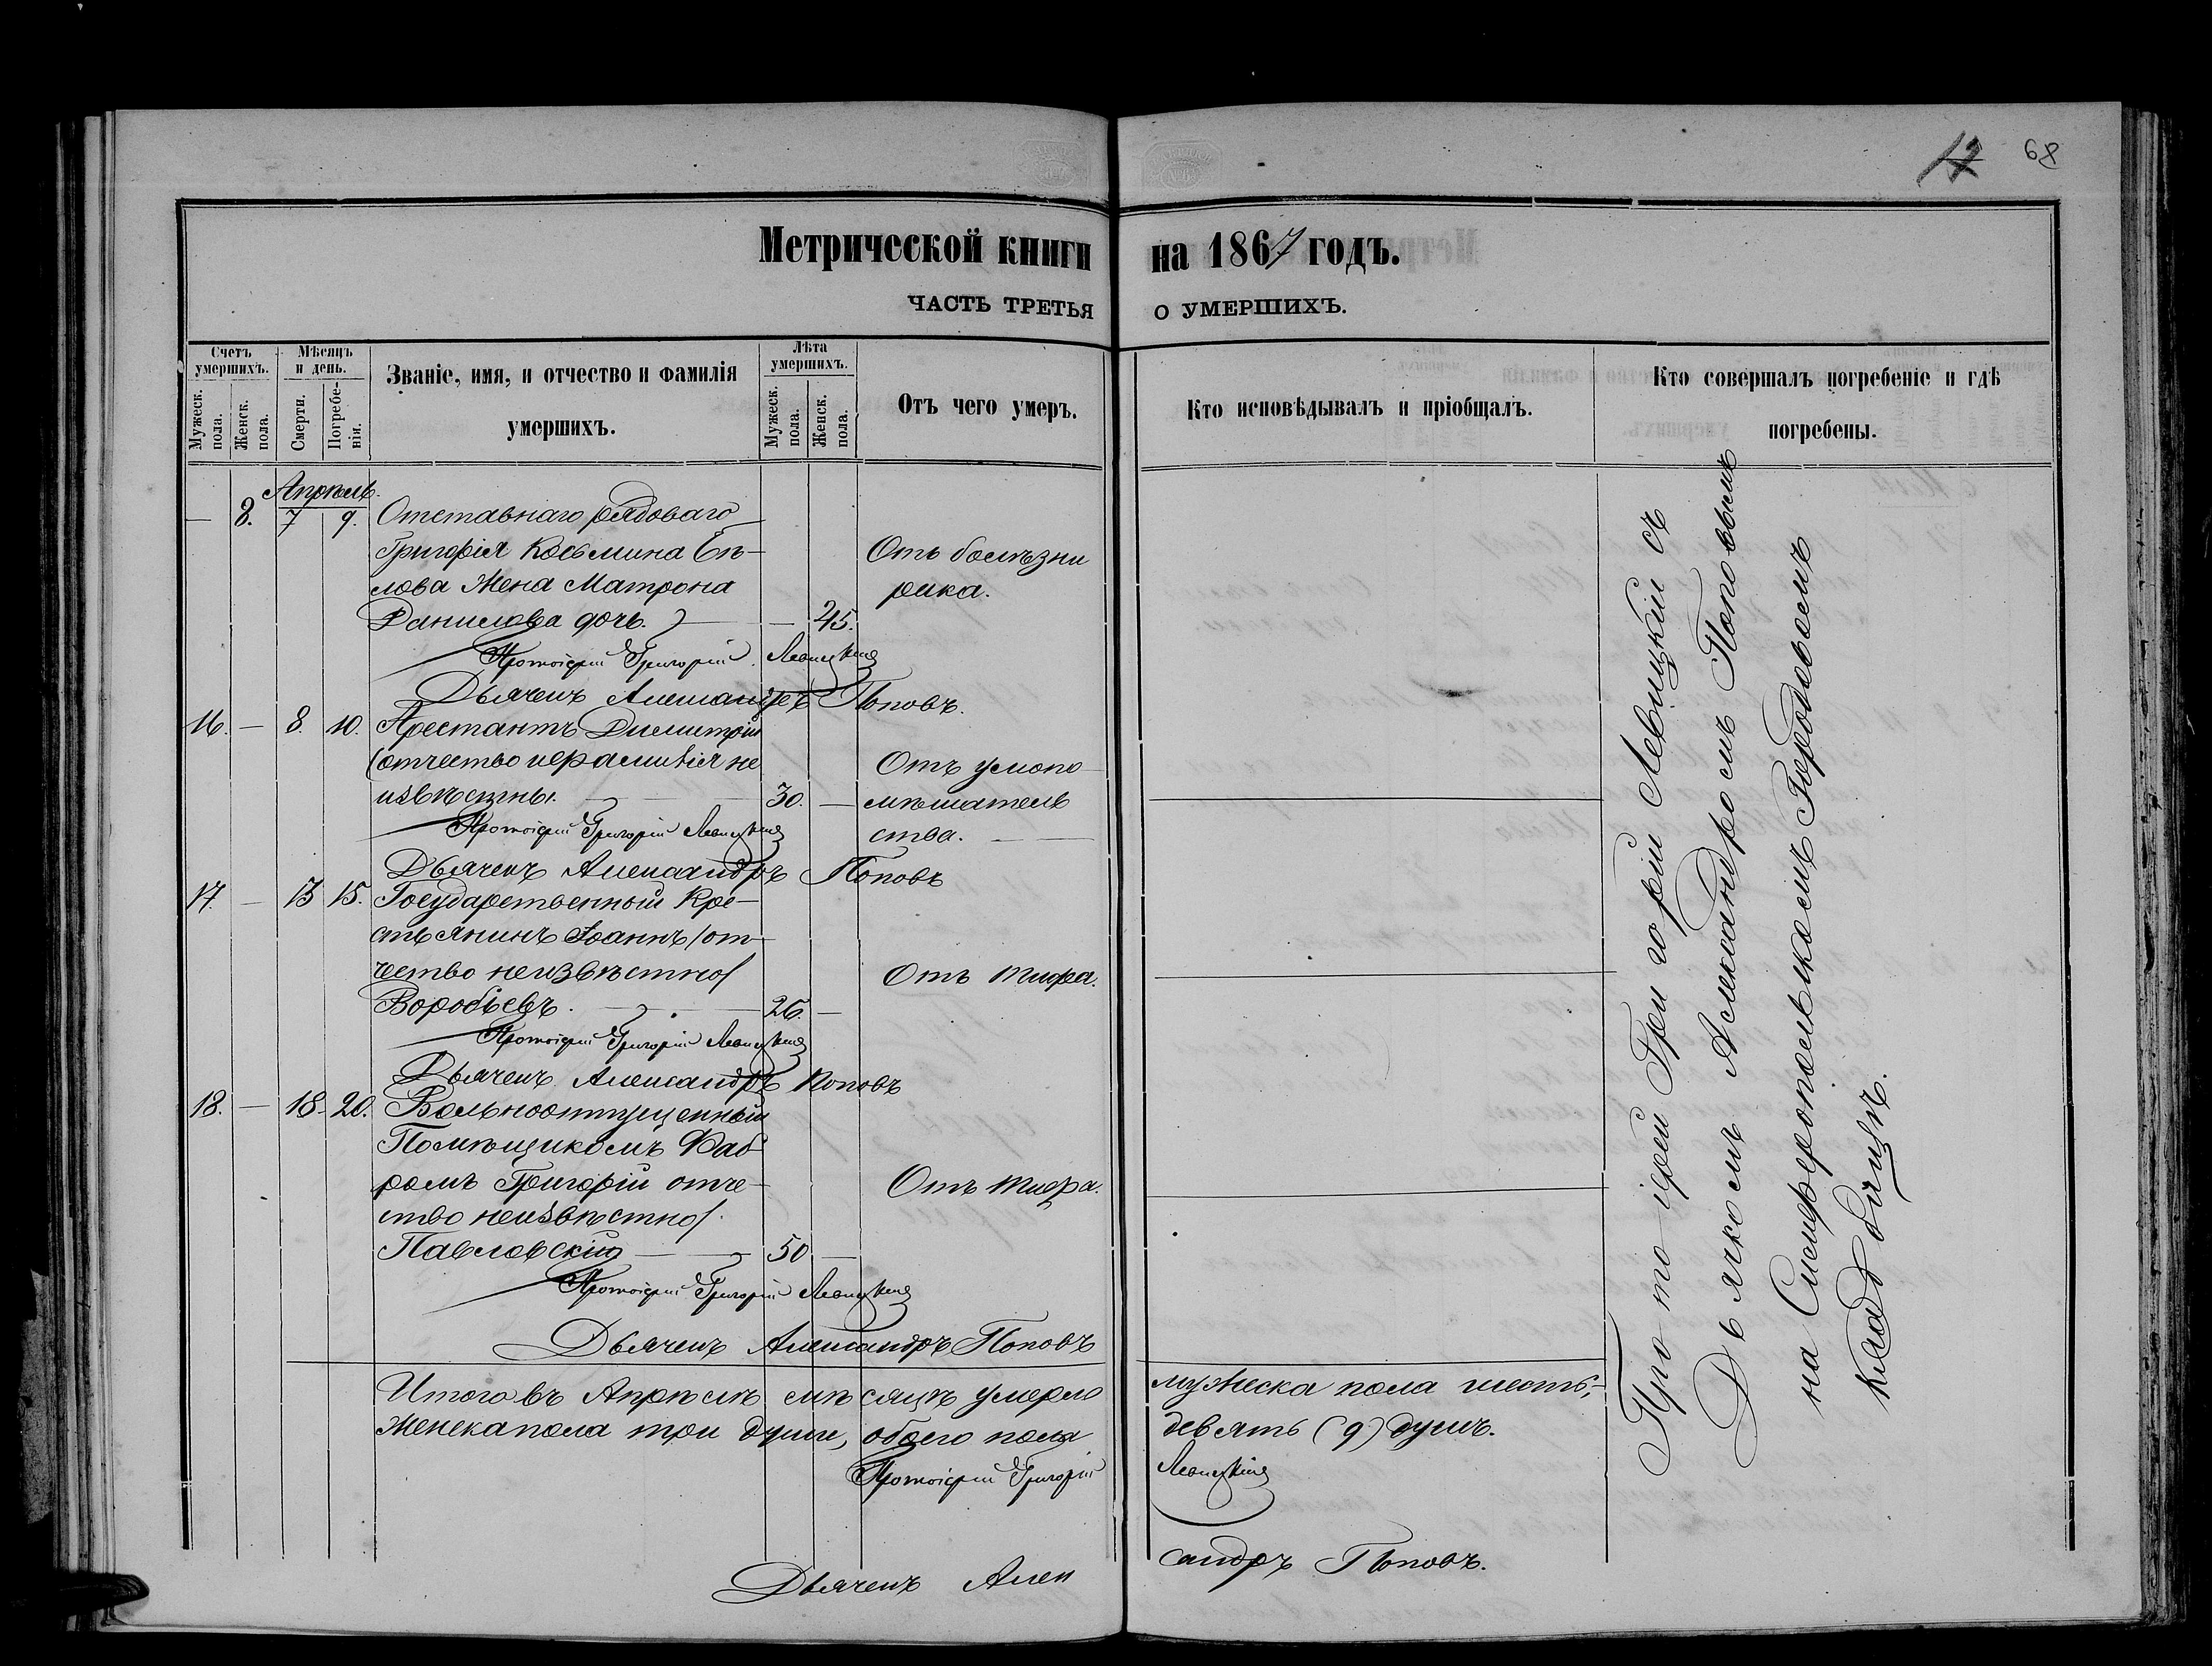 68
Метрической книги на 1867 годъ.
ЧАСТЬ ТРЕТЬЯ О УМЕРШИХЪ.
Счетъ умершихъ.
Мужеск. пола.
Женск. пола.
Мѣсяцъ и день.
Смерти.
Погребе-нія.
Званіе, имя, и отчество и фамилія
умершихъ.
Лѣта умершихъ.
Мужеск. пола.
Женск. пола.
Отъ чего умеръ.
Кто исповѣдывалъ и пріобщалъ.
Кто совершалъ погребеніе и гдѣ
погребены.
Апрѣль.
— 8. 7 9. Отставнаго рядоваго
Григорія Косьмина Еп-
лова Жена Матрона
Данилова дочь. — 45.
Отъ болѣзни
рака.
Протоіерей Григорій Левицкій
Дьячекъ Александръ Поповъ.
16. — 8. 10. Арестантъ Димитрій
(отчество и фамилія не
извѣстны. 30. —
Отъ умопо
мѣшатель
ства.
Протоіерей Григорій Левицкій
Дьячекъ Александръ Поповъ
17. — 13 15. Государственный Кре-
стьянинъ Іоаннъ /от-
чество неизвѣстно/
Воробьевъ. 26. —
Отъ тифа.
Протоіерей Григорій Левицкій
Дьячекъ Александръ Поповъ
18. — 18. 20. Вольноотпущенный
Помѣщикомъ
Григорій отче-
ство неизвѣстно/.
Павловскій 50 —
Отъ тифа.
Протоіерей Григорій Левицкій
Дьячекъ Александръ Поповъ
Итого въ Апрѣлѣ мѣсяцѣ умерло мужеска пола шесть,
женска пола три души, обоего пола девять (9) душъ.
Протоіерей Григорій Левицкій
Дьячекъ Александръ Поповъ.
Протоіерей Григорій Левицкій съ
Дьячкомъ Александромъ Поповымъ
на Симферопольскомъ Городскомъ
кладбищѣ.